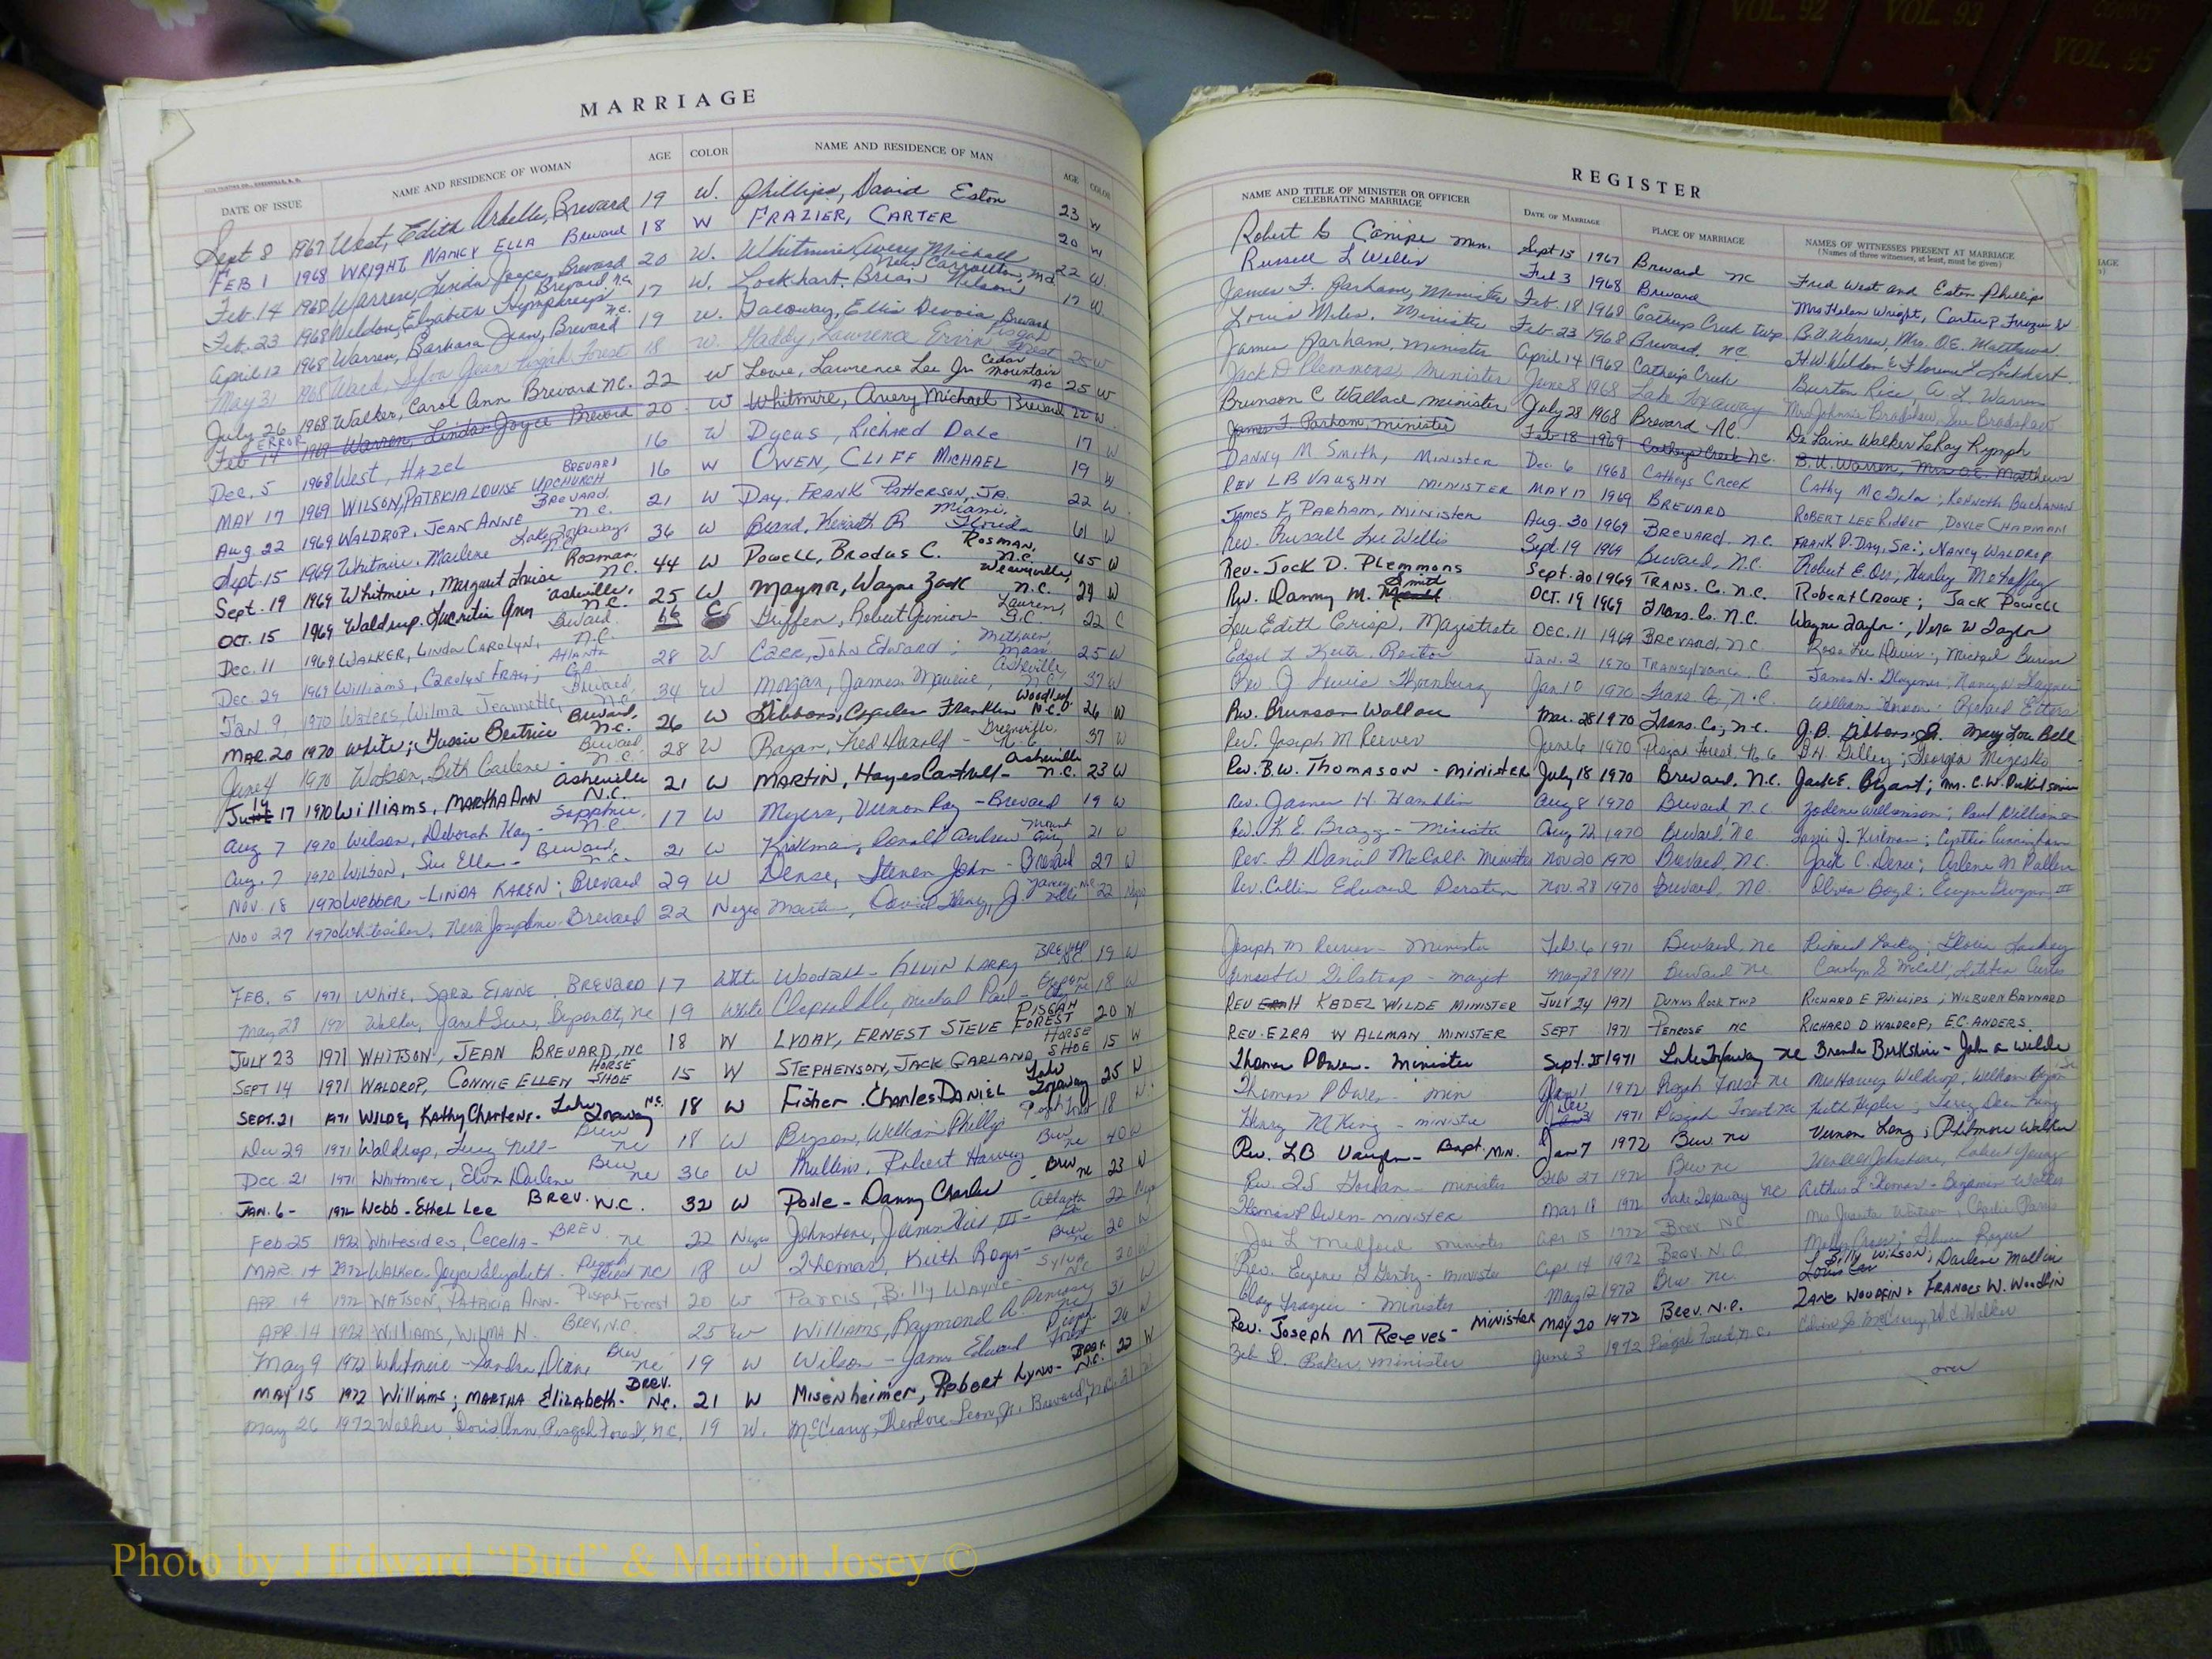 VOL. 90
VOL. 91
VOL. 92
VOL. 93
COUNTY
VOL. 95
MARRIAGE
DATE OF ISSUE NAME AND RESIDENCE OF WOMAN AGE COLOR NAME AND RESIDENCE OF MAN AGE COLOR
Sept 8 1967 West, Edith Arbella, Brevard 19 W. Phillips, David Eston 23 W
FEB 1 1968 WRIGHT, NANCY ELLA Brevard 18 W FRAZIER, CARTER 20 W
Feb. 14 1968 Warren, Linda Joyce, Brevard 20 W. Whitmire, Avery Michael 22 W.
Feb. 23 1968 Weldon, Elizabeth Humphreys Brevard, N.C. 17 W. Lockhart, Brian Nelson New Carrollton, Md. 17 W
April 12 1968 Warren, Barbara Jean, Brevard N.C. 19 W. Galloway, Ellis Brevard
May 31 1968 Ward, Jean Pisgah Forest 18 W. Gaddy, Lawrence Ervin Pisgah Forest 25 W
July 26 1968 Walker, Carol Ann Brevard N.C. 22 W Lowe, Lawrence Lee Jr. Cedar Mountain NC 25 W
ERROR
Feb 14 1969 Warren, Linda Joyce Brevard 20 W Whitmire, Avery Michael Brevard 22 W.
Dec. 5 1968 West, Hazel 16 W Dycus, Richard Dale 17 W
MAY 17 1969 WILSON, PATRICIA LOUISE BREVARD 16 W OWEN, CLIFF MICHAEL 19 W
Aug. 22 1969 WALDROP, JEAN ANNE BREVARD. N.C. 21 W DAY, FRANK PATTERSON, JR. 22 W.
Sept. 15 1969 Whitmire, Marlene Lake Toxaway, NC 36 W Beard, Kenneth R Miami, Florida 61 W
Sept. 19 1969 Whitmire, Margaret Louise Rosman, N.C. 44 W Powell, Brodus C. ROSMAN, N.C. 45 W
OCT. 15 1969 Waldrup, Lucretia Ann Asheville, N.C. 25 W Maynor, Wayne Zack Weaverville, N.C. 29 W
Dec. 11 1969 WALKER, LINDA CAROLYN, Brevard, N.C. 16 C Griffin, Robert Junior Laurens, S.C. 22 C
Dec 29 1969 Williams, Carolyn Atlanta GA 28 W CARR, John Edward; Methuen, Mass. 25 W
JAN 9, 1970 Waters, Wilma Jeannette, Brevard, N.C. 34 W Morgan, James Maurice, Asheville, N.C. 37 W
MAR. 20 1970 White; Jessie Beatrice Brevard, N.C. 26 W Gibbons, Charles Franklin Woodleaf, N.C. 26 W
June 4 1970 Watson, Beth Earlene - Brevard, N.C. 28 W Ragan, Fred Harold - Greenville, N.C. 37 W
July 17 1970 Williams, MARTHA ANN Asheville N.C. 21 W MARTIN, Hayes Cantrell - Asheville N.C. 23 W
Aug 7 1970 Wilson, Deborah Kay - Sapphire, N.C. 17 W Myers, Vernon Ray - Brevard 19 W
Aug. 7 1970 WILSON, Sue Ellen - Brevard, N.C. 21 W Kirkman, Ronald Andrew Mount Airy 21 W
NOV. 18 1970 WEBBER - LINDA KAREN; Brevard 29 W Dense, Steven John - Brevard 27 W
Nov 27 1970 Whitesides, Neva Josephine - Brevard 22 Negro Martin, David Henry, Jr. 22 Negro
FEB. 5 1971 White, SARA ELAINE, BREVARD 17 White Woodall - ALVIN LARRY BREVARD 19 W
May 28 1971 Walker, Janet Sue, 19 White
JULY 23 1971 WHITSON, JEAN BREVARD, NC 18 W LYDAY, ERNEST STEVE PISGAH FOREST 20 W
SEPT 14 1971 WALDROP, CONNIE ELLEN HORSE SHOE 15 W STEPHENSON, JACK GARLAND HORSE SHOE 15 W
SEPT. 21 1971 WILDE, Kathy Charlene - Lake Toxaway N.C. 18 W Fisher, Charles DANIEL Lake Toxaway 25 W
Dec 29 1971 Waldrop, Nell - Brev NC 18 W Bryson, William Phillip Pisgah Forest 18 W.
Dec 21 1971 Whitmire, Elva Darlene Brev NC 36 W Mullins, Robert Harvey Brev NC 40 W
JAN. 6 - 1972 Webb - Ethel Lee BREV. N.C. 32 W Poole - Danny Charles - Brev NC 23 W
Feb 25 1972 Whitesides, Cecelia - BREV. NC 22 Negro Johnstone, James III - Atlanta Ga 22 Negro
MAR. 14 1972 WALKER, Joyce Elizabeth - Pisgah Forest NC 18 W Thomas, Keith Roger - Brev NC 20 W
APR 14 1972 WATSON, PATRICIA ANN - Pisgah Forest 20 W Parris, Billy Wayne - SYLVA NC 20 W
APR. 14 1972 Williams, WILMA H. BREV, N.C. 25 W Williams, Raymond A. Penrose, NC 31 W
May 9 1972 Whitmire - Sandra Diane Brev NC 19 W Wilson - James Edward Pisgah Forest 24 W
MAY 15 1972 Williams; MARTHA Elizabeth - BREV. N.C. 21 W Misenheimer, Robert Lynn - BREV. N.C. 22 W
May 26 1972 Walker, Doris Ann, Pisgah Forest, N.C. 19 W. McCrary, Theodore Leon, Jr. Brevard, N.C. 21 W
REGISTER
NAME AND TITLE OF MINISTER OR OFFICER CELEBRATING MARRIAGE DATE OF MARRIAGE PLACE OF MARRIAGE NAMES OF WITNESSES PRESENT AT MARRIAGE
(Names of three witnesses, at least, must be given)
Robert G Canipe Min. Sept 15 1967 Brevard NC Fred West and Eston Phillips
Russell L Willis Feb 3 1968 Brevard Mrs Helen Wright, Carter P Frazier Sr
James F. Parham, Minister Feb. 18 1968 Catheys Creek Twp B.U. Warren, Mrs. O.E. Matthews
Louis Miles, Minister Feb. 23 1968 Brevard, NC. H.W. Weldon & Florence L Lockhart
James Parham, Minister April 14 1968 Catheys Creek Burton Rice, A. L. Warren
Jack D Plemmons, Minister June 8 1968 Lake Toxaway Mrs Johnnie Bradshaw, Sue Bradshaw
Brunson C Wallace minister July 28 1968 Brevard N.C. De Laine Walker LeRoy Rymph
James F. Parham, minister Feb 18 1969 Catheys Creek N.C. B.U. Warren, Mrs. O.E. Matthews
DANNY M SMITH, MINISTER Dec 6 1968 Catheys Creek Cathy McCall; Kenneth Buchanan
REV L B VAUGHN MINISTER MAY 17 1969 BREVARD ROBERT LEE DOYLE CHAPMAN
JAMES F. PARHAM, MINISTER Aug. 30 1969 BREVARD, N.C. FRANK P. DAY, SR.; NANCY WALDROP
Rev. Russell Lee Willis Sept. 19 1969 Brevard, N.C. Robert E. Orr, Harley McGaffey
Rev. Jack D. Plemmons Sept. 20 1969 TRANS. Co. N.C. Robert CROWE; Jack Powell
Rev. Danny M. Smith OCT. 19 1969 Trans. Co. N.C. Wayne Taylor; Vera W Taylor
Lou Edith Crisp, Magistrate DEC. 11 1969 BREVARD, N.C. Rosa Lee Michael
Edgel L Keith, Rector JAN. 2 1970 TRANSylvania C James H.
Rev. J Lewis Thornburg Jan 10 1970 Trans Co, N.C. William Richard
Rev. Brunson Wallace Mar. 28 1970 Trans. Co, N.C. J.B. Gibbons, Jr. Mary Lou Bell
Rev. Joseph M Reeves June 6 1970 Pisgah Forest, N.C. Georgia
Rev. B.W. THOMASON - MINISTER July 18 1970 Brevard, N.C. Jack E. Bryant; Mrs. C.W.
Rev. James H. Hamblin Aug 8 1970 Brevard, N.C. Williamson; Paul Williamson
Rev. K E Bragg - Minister Aug 22 1970 Brevard, NC J. Kirkman; Cynthia Cunningham
Rev. G Daniel McCall - Minister Nov 20 1970 Brevard, N.C. Jack C. Dense; Arlene M
Rev. Collin Edward Nov. 28 1970 Brevard, NC. Oliver Boyd; Eugene III
Joseph M Reeves - Minister Feb. 6 1971 Brevard, NC Richard Lackey; Gloria Lackey
Ernest W Gilstrap - Magist May 28 1971 Brevard NC Carolyn S. McCall; Letitia Curtis
REV H KADEL WILDE MINISTER JULY 24 1971 DUNNS ROCK TWP RICHARD E PHILLIPS; WILBURN BAYNARD
REV. EZRA W ALLMAN MINISTER SEPT 1971 PENROSE NC RICHARD D WALDROP, E.C. ANDERS
Thomas P Owen - Minister Sept. 25 1971 Lake Toxaway NC Brenda Berkshire - John A Wilde
Thomas P Owen - Min Jan 1 1972 Pisgah Forest NC Mrs Harvey Waldrop; William Bryson Sr
Henry M King - minister Dec 31 1971 Pisgah Forest NC Keith
Rev. LB Vaughn - Bapt. Min. Jan 7 1972 Brev NC Vernon Long; Philmore Walker
minister Feb 27 1972 Brev NC
Thomas P Owen - MINISTER Mar 18 1972 Lake Toxaway NC Arthur L Thomas - Benjamin Walker
Joe L Medford minister Apr 15 1972 Brev. NC Mrs Juanita Watson, Charlie Parris
Rev. Eugene L Gentry - minister Apr 14 1972 Brev. N.C.
Clay Frazier - Minister May 12 1972 Brev NC Billy WILSON; Darlene Mullin
Rev. Joseph M Reeves - Minister MAY 20 1972 BREV. N.C. ZANE WOODFIN & FRANCES W. WOODFIN
Zeb D. Baker, Minister June 3 1972 Pisgah Forest, N.C. McCrary, W.C. Walker
over
Photo by J Edward “Bud” & Marion Josey ©